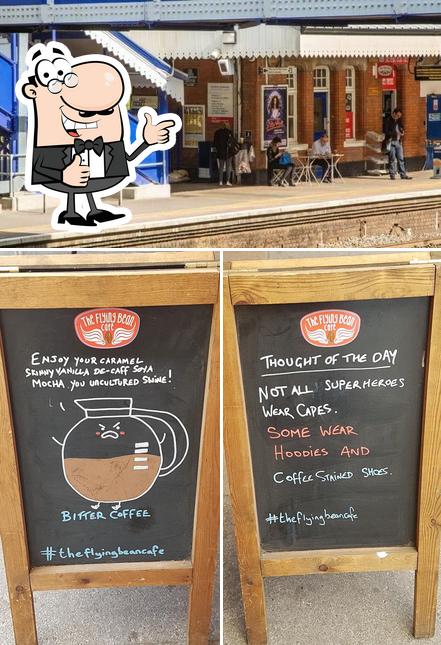 The Flying Bean
Cafe
ENJOY YOUR CARAMEL
SKINNY VANILLA DE-CAFF SOYA
MOCHA, YOU UNCULTURED SWINE!
BITTER COFFEE
#theflyingbeancafe
The Flying Bean
Cafe
THOUGHT OF THE DAY
NOT ALL SUPERHEROES
WEAR CAPES.
SOME WEAR
HOODIES AND
COFFEE STAINED SHOES.
#theflyingbeancafe